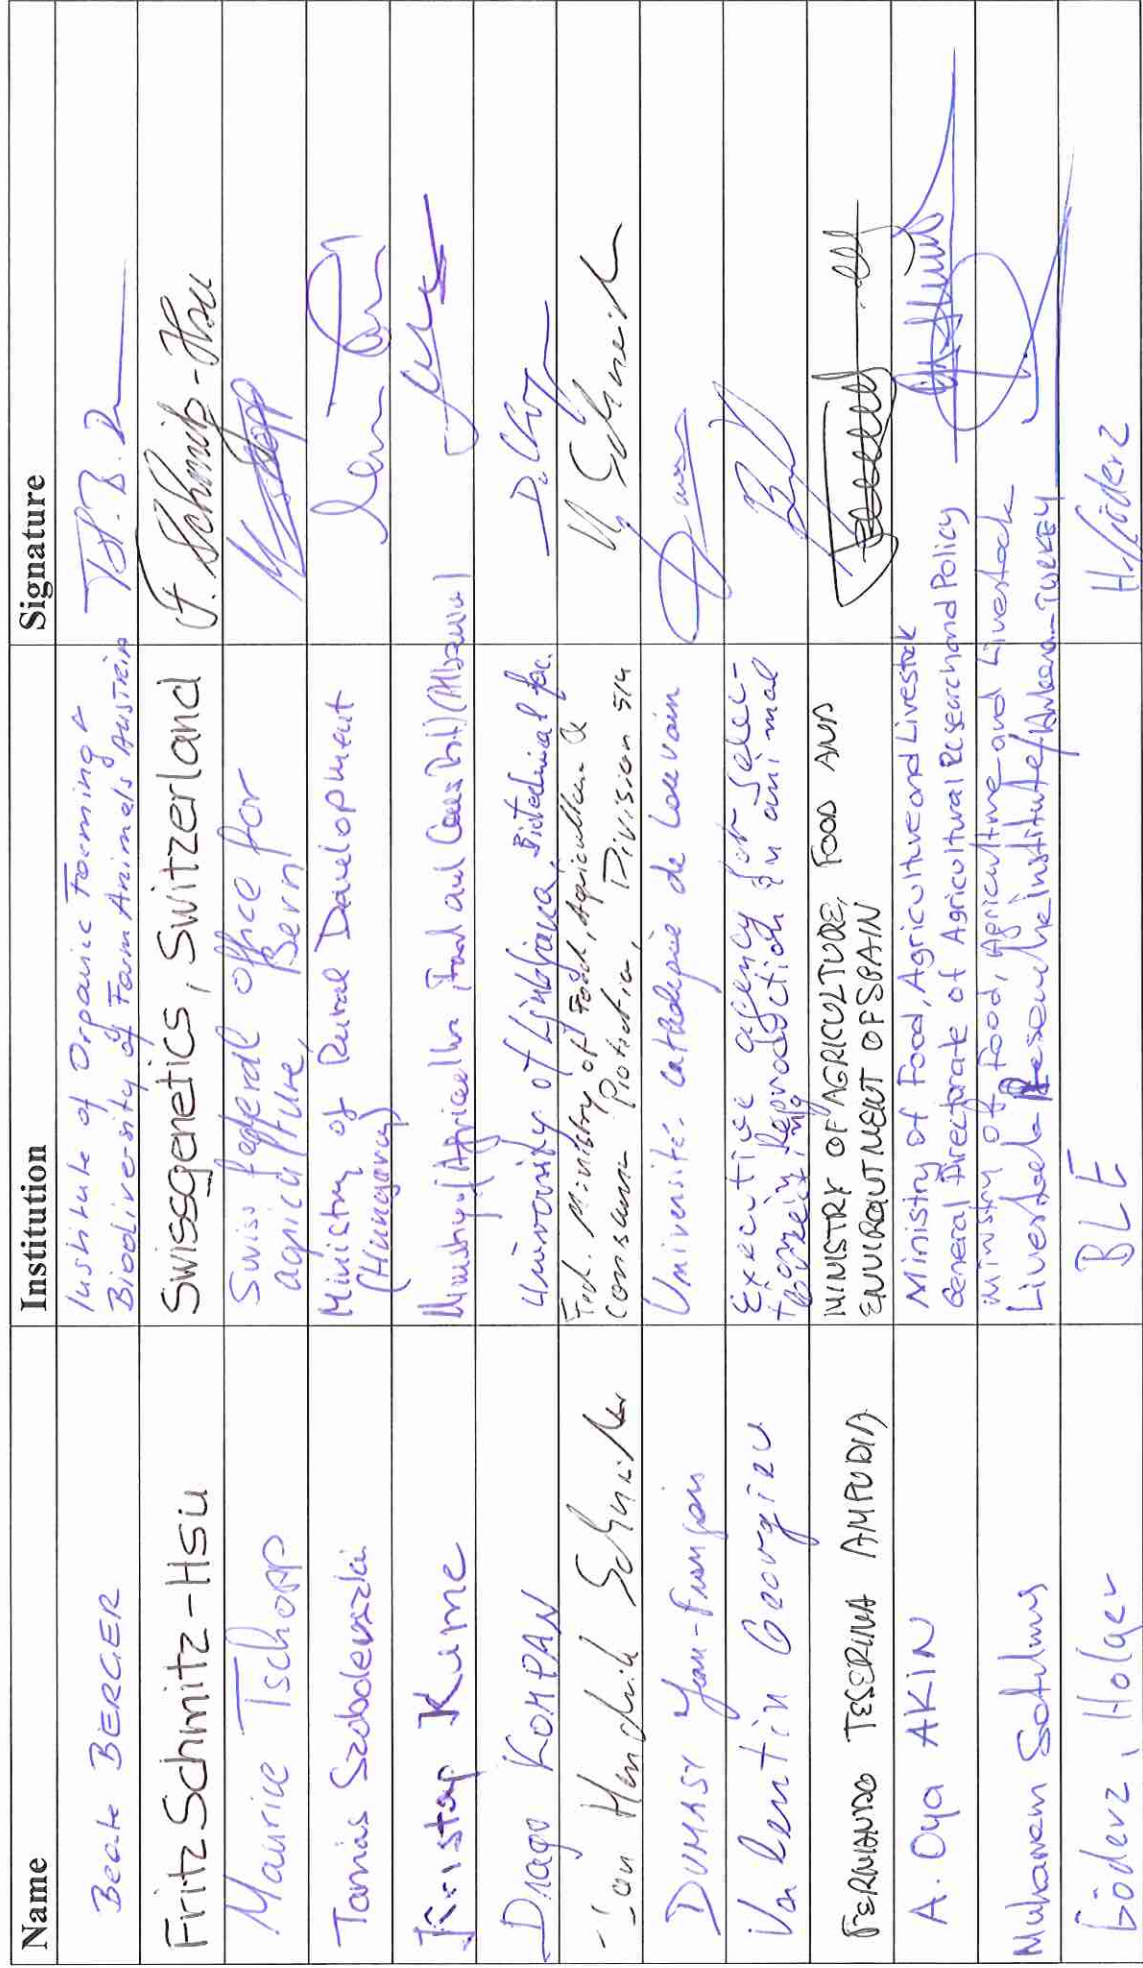 Name Institution Signature
Beate BERGER Institute of Organic Farming &
Biodiversity of Farm Animals AUSTRIA
Fritz Schmitz-Hsu Swissgenetics, Switzerland F. Schmitz-Hsu
Maurice Tschopp Swiss federal office for
agriculture, Bern
Tamás Szobolevszki Ministry of Rural Development
(Hungary)
Kristaq Kume Ministry of Agriculture, Food and (Albania)
Drago KOMPAN University of Ljubljana, Biotechnical fac.
Jan Hendrik Schneider Fed. Ministry of Food, Agriculture &
Consumer Protection, Division 514
DUMASY Jean-François Université catholique de Louvain
Valentin Georgiev Executive agency for selec-
tion and Reproduction in animal
breeding
FERNANDO TEJERINA AMPUDIA MINISTRY OF AGRICULTURE, FOOD AND
ENVIRONTMENT OF SPAIN
A. Oya AKIN Ministry of Food, Agriculture and Livestock
General Directorate of Agricultural Research and Policy
Muharrem Satılmış Ministry of Food, Agriculture and Livestock
Livestock Research Institute/Ankara-TURKEY
Göderz, Holger BLE H. Göderz